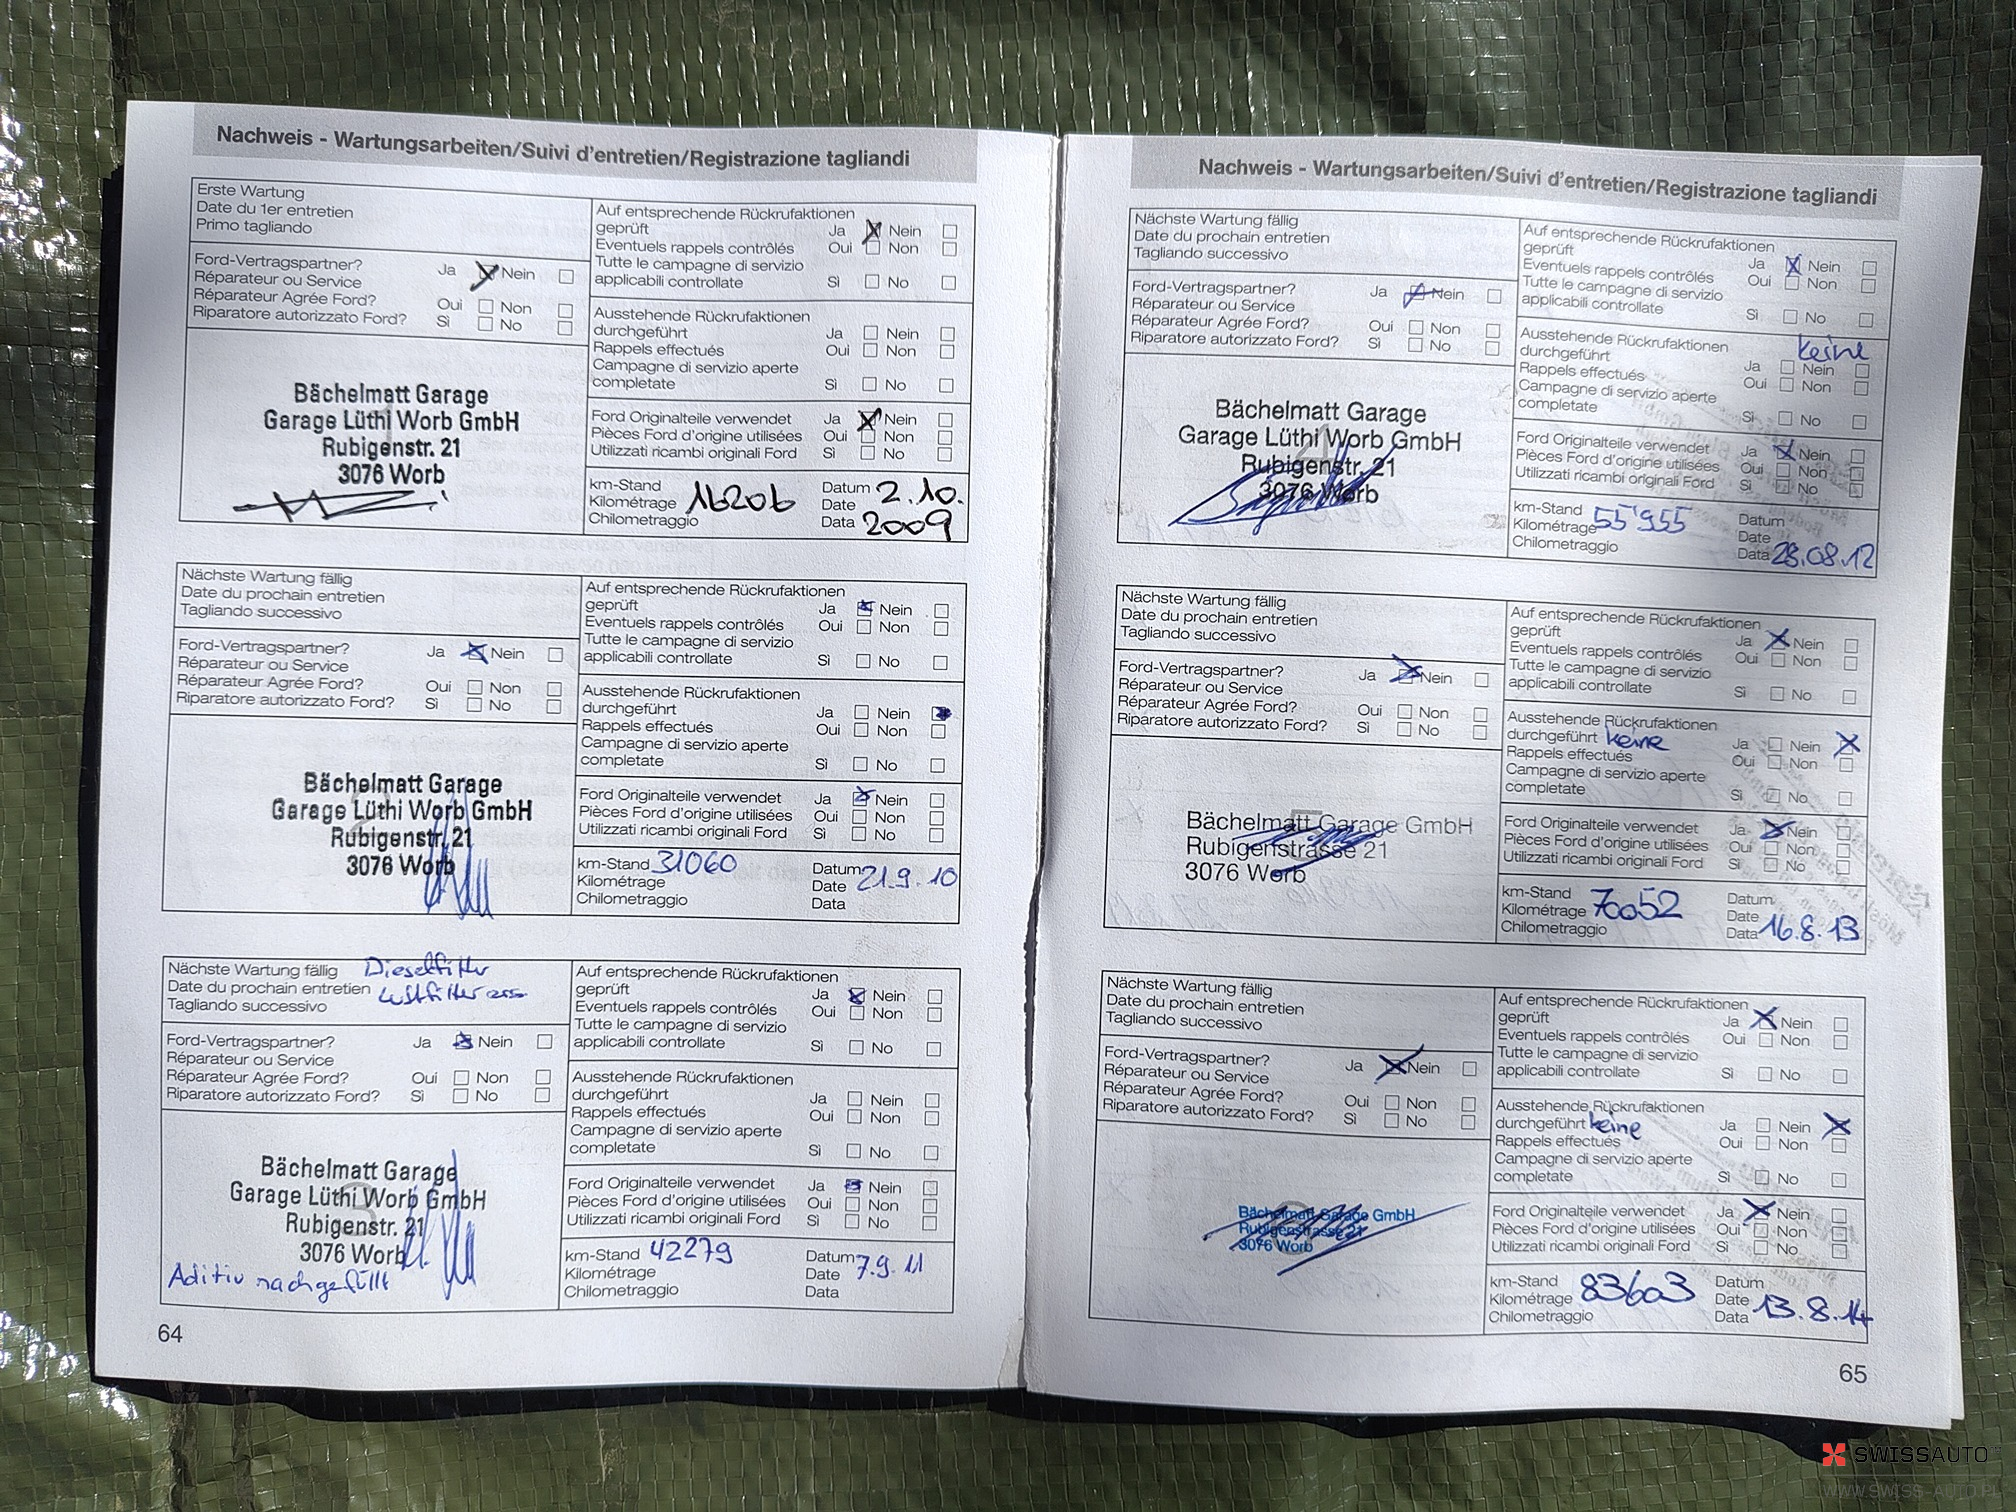 Nachweis - Wartungsarbeiten/Suivi d'entretien/Registrazione tagliandi
Erste Wartung
Date du 1er entretien
Primo tagliando
Ford-Vertragspartner? Ja Nein
Réparateur ou Service
Réparateur Agrée Ford? Oui Non
Riparatore autorizzato Ford? Sì No
Bächelmatt Garage
Garage Lüthi Worb GmbH
Rubigenstr. 21
3076 Worb
Auf entsprechende Rückrufaktionen
geprüft Ja Nein
Eventuels rappels contrôlés Oui Non
Tutte le campagne di servizio
applicabili controllate Sì No
Ausstehende Rückrufaktionen
durchgeführt Ja Nein
Rappels effectués Oui Non
Campagne di servizio aperte
completate Sì No
Ford Originalteile verwendet Ja Nein
Pièces Ford d'origine utilisées Oui Non
Utilizzati ricambi originali Ford Sì No
km-Stand Datum 2.10.
Kilométrage 16206 Date
Chilometraggio Data 2009
Nächste Wartung fällig
Date du prochain entretien
Tagliando successivo
Ford-Vertragspartner? Ja Nein
Réparateur ou Service
Réparateur Agrée Ford? Oui Non
Riparatore autorizzato Ford? Sì No
Bächelmatt Garage
Garage Lüthi Worb GmbH
Rubigenstr. 21
3076 Worb
Auf entsprechende Rückrufaktionen
geprüft Ja Nein
Eventuels rappels contrôlés Oui Non
Tutte le campagne di servizio
applicabili controllate Sì No
Ausstehende Rückrufaktionen
durchgeführt Ja Nein
Rappels effectués Oui Non
Campagne di servizio aperte
completate Sì No
Ford Originalteile verwendet Ja Nein
Pièces Ford d'origine utilisées Oui Non
Utilizzati ricambi originali Ford Sì No
km-Stand 31060 Datum
Kilométrage Date 21.9.10
Chilometraggio Data
Nächste Wartung fällig Dieselfilter
Date du prochain entretien Luftfilter
Tagliando successivo
Ford-Vertragspartner? Ja Nein
Réparateur ou Service
Réparateur Agrée Ford? Oui Non
Riparatore autorizzato Ford? Sì No
Bächelmatt Garage
Garage Lüthi Worb GmbH
Rubigenstr. 21
3076 Worb
Aditiv nachgefüllt
Auf entsprechende Rückrufaktionen
geprüft Ja Nein
Eventuels rappels contrôlés Oui Non
Tutte le campagne di servizio
applicabili controllate Sì No
Ausstehende Rückrufaktionen
durchgeführt Ja Nein
Rappels effectués Oui Non
Campagne di servizio aperte
completate Sì No
Ford Originalteile verwendet Ja Nein
Pièces Ford d'origine utilisées Oui Non
Utilizzati ricambi originali Ford Sì No
km-Stand 42279 Datum
Kilométrage Date 7.9.11
Chilometraggio Data
64
Nachweis - Wartungsarbeiten/Suivi d'entretien/Registrazione tagliandi
Nächste Wartung fällig
Date du prochain entretien
Tagliando successivo
Ford-Vertragspartner? Ja Nein
Réparateur ou Service
Réparateur Agrée Ford? Oui Non
Riparatore autorizzato Ford? Sì No
Bächelmatt Garage
Garage Lüthi Worb GmbH
Rubigenstr. 21
3076 Worb
Auf entsprechende Rückrufaktionen
geprüft Ja Nein
Eventuels rappels contrôlés Oui Non
Tutte le campagne di servizio
applicabili controllate Sì No
Ausstehende Rückrufaktionen keine
durchgeführt Ja Nein
Rappels effectués Oui Non
Campagne di servizio aperte
completate Sì No
Ford Originalteile verwendet Ja Nein
Pièces Ford d'origine utilisées Oui Non
Utilizzati ricambi originali Ford Sì No
km-Stand Datum
Kilométrage 55'955 Date
Chilometraggio Data 28.08.12
Nächste Wartung fällig
Date du prochain entretien
Tagliando successivo
Ford-Vertragspartner? Ja Nein
Réparateur ou Service
Réparateur Agrée Ford? Oui Non
Riparatore autorizzato Ford? Sì No
Bächelmatt Garage GmbH
Rubigenstrasse 21
3076 Worb
Auf entsprechende Rückrufaktionen
geprüft Ja Nein
Eventuels rappels contrôlés Oui Non
Tutte le campagne di servizio
applicabili controllate Sì No
Ausstehende Rückrufaktionen
durchgeführt keine Ja Nein
Rappels effectués Oui Non
Campagne di servizio aperte
completate Sì No
Ford Originalteile verwendet Ja Nein
Pièces Ford d'origine utilisées Oui Non
Utilizzati ricambi originali Ford Sì No
km-Stand Datum
Kilométrage 70052 Date
Chilometraggio Data 16.8.13
Nächste Wartung fällig
Date du prochain entretien
Tagliando successivo
Ford-Vertragspartner? Ja Nein
Réparateur ou Service
Réparateur Agrée Ford? Oui Non
Riparatore autorizzato Ford? Sì No
Bächelmatt Garage GmbH
Rubigenstrasse 21
3076 Worb
Auf entsprechende Rückrufaktionen
geprüft Ja Nein
Eventuels rappels contrôlés Oui Non
Tutte le campagne di servizio
applicabili controllate Sì No
Ausstehende Rückrufaktionen
durchgeführt keine Ja Nein
Rappels effectués Oui Non
Campagne di servizio aperte
completate Sì No
Ford Originalteile verwendet Ja Nein
Pièces Ford d'origine utilisées Oui Non
Utilizzati ricambi originali Ford Sì No
km-Stand Datum
Kilométrage 83603 Date
Chilometraggio Data 13.8.14
65
SWISSAUTO
WWW.SWISS-AUTO.PL